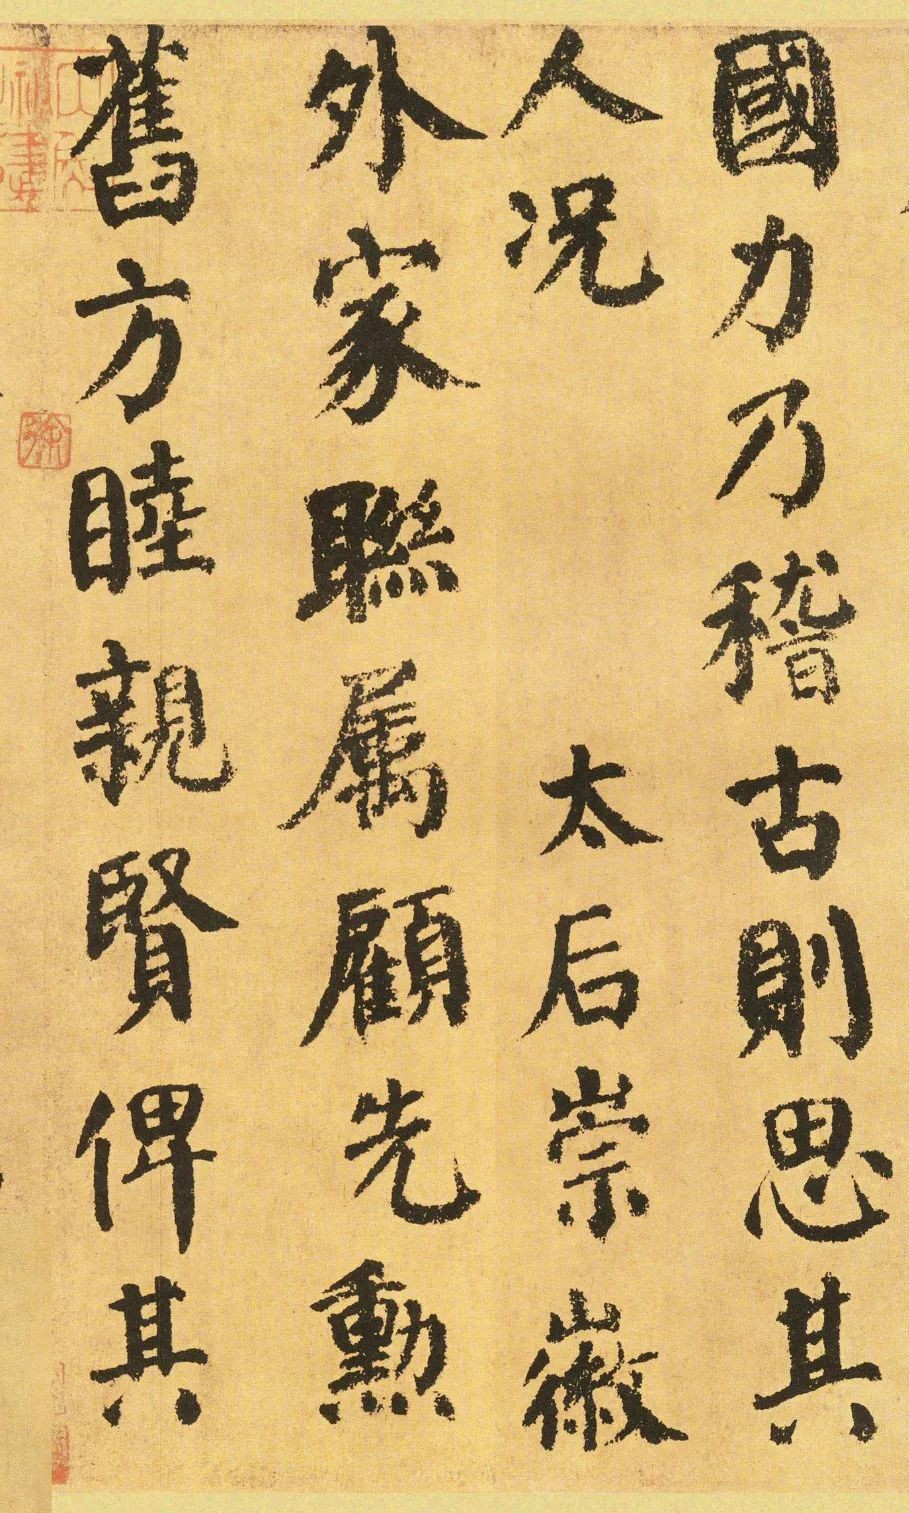 國力乃稽古則思其
人况太后崇徽
外家聮属顧先勲
舊方睦親賢俾其